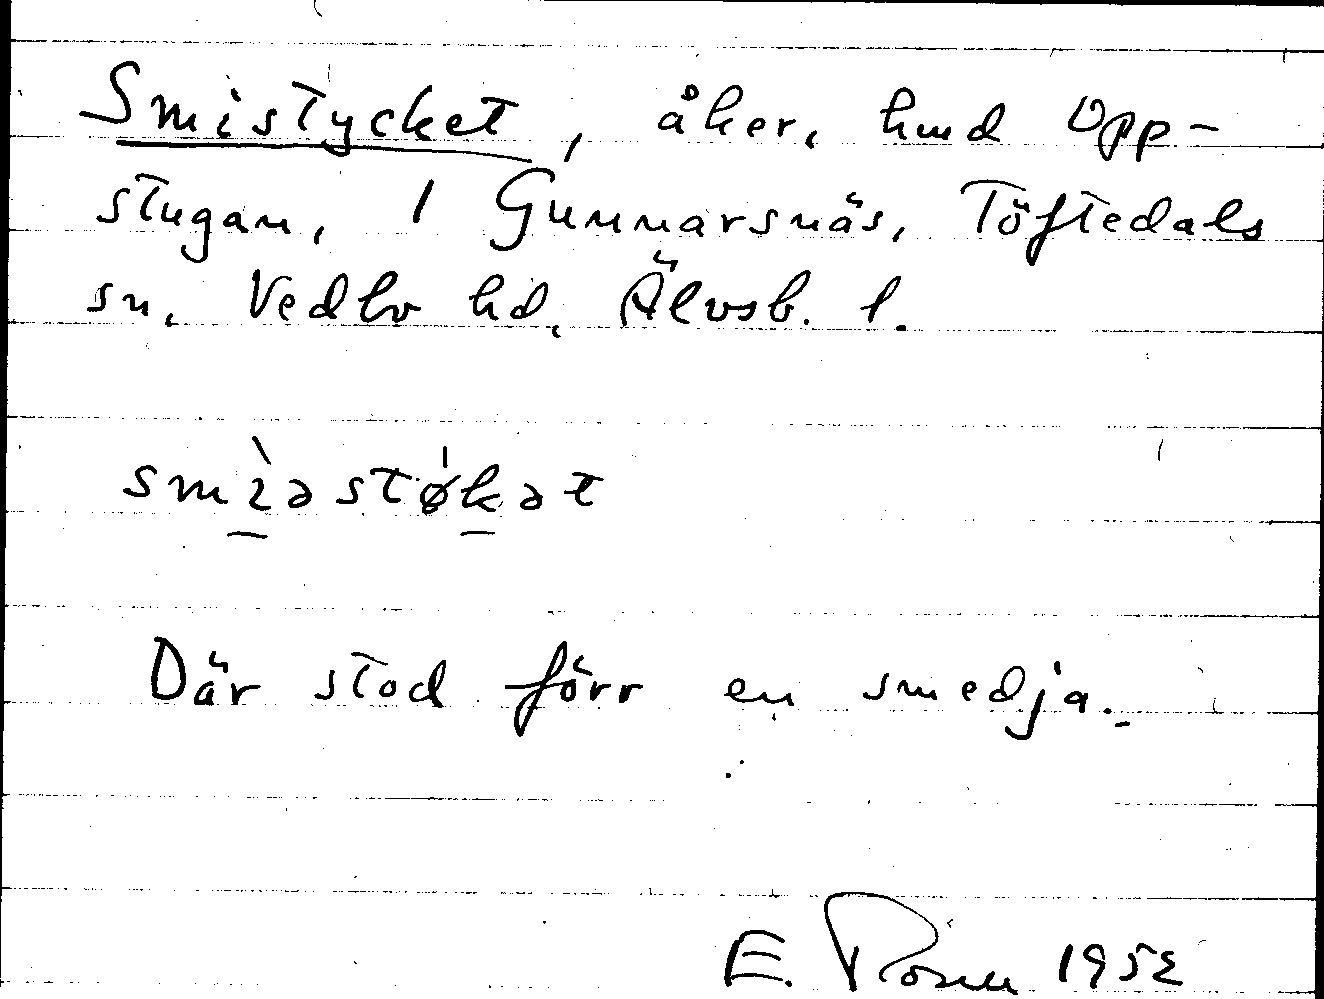 Smistycket, åker, hmd Opp-
stugan, 1 Gunnarsnäs, Töftedals
sn, Vedbo hd, Älvsb. l.
smìəstø̍kət
Där stod förr en smedja.
E. Rosell 1952